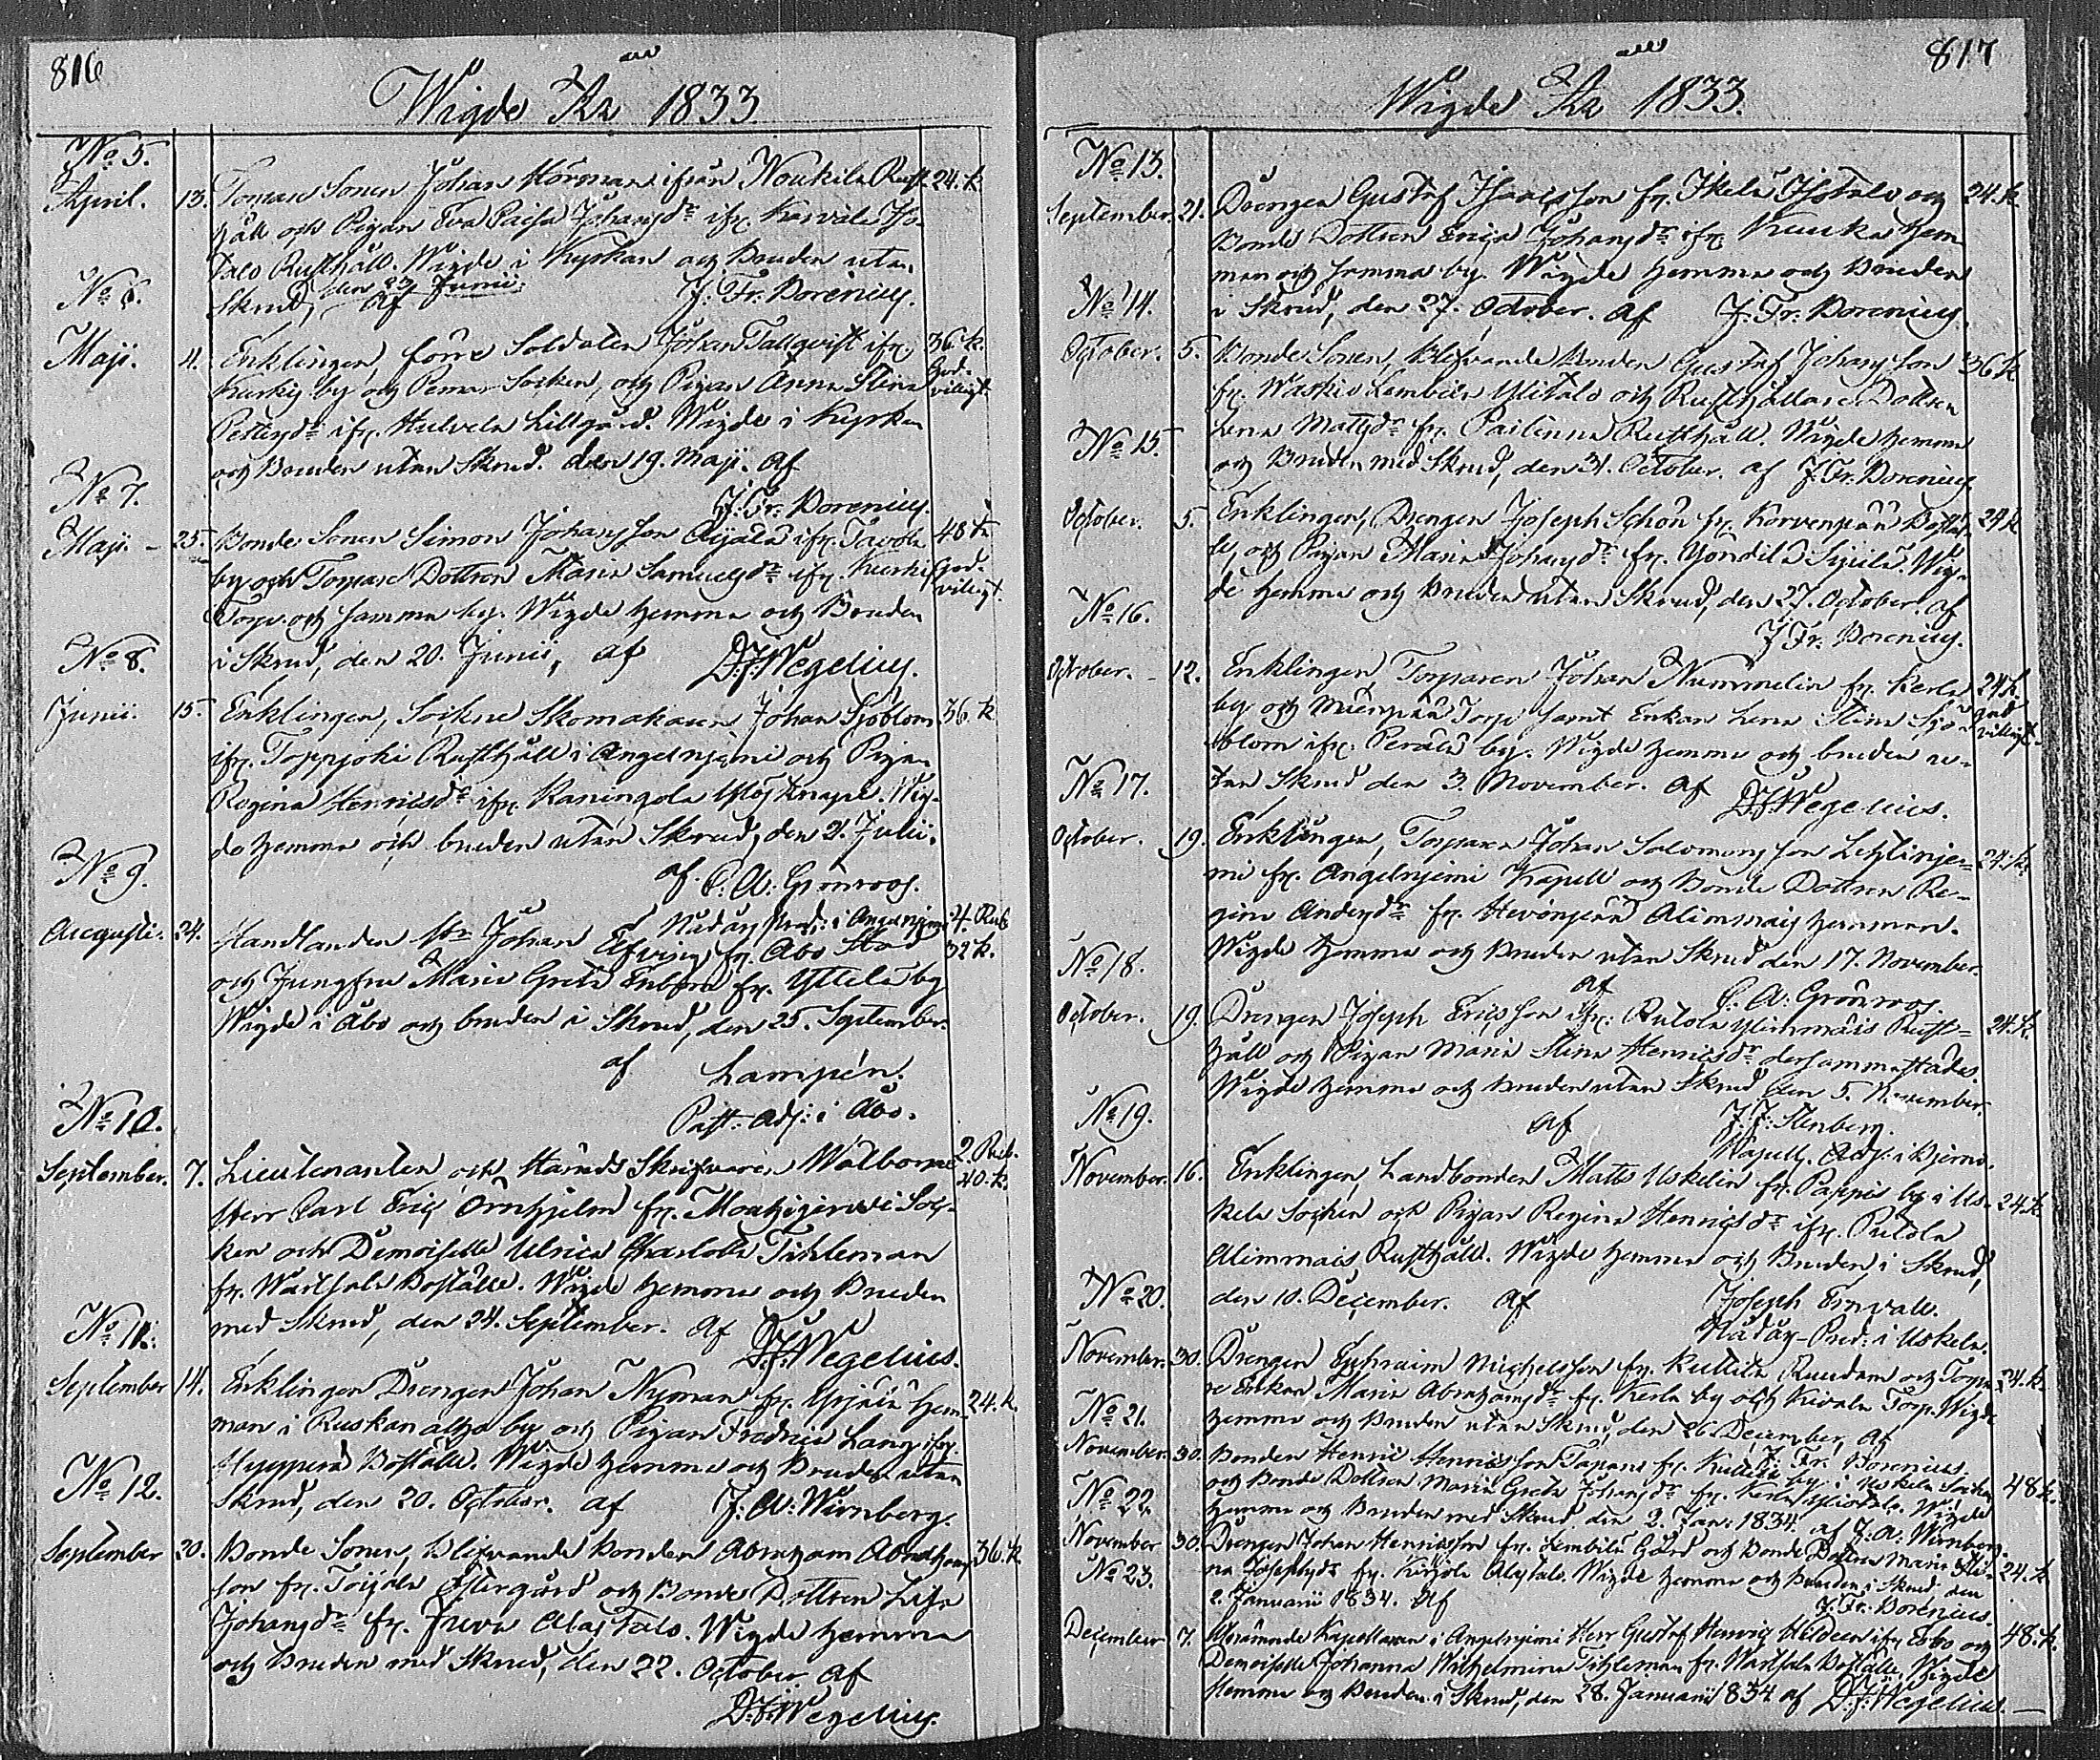 816
Wigde År 1833
No 5.
April. 13. Torpare Sonen Johan Körman ifrån Noukila Rust- 24. k.
håll och Pigan Eva Caisa Johansdr ifr. Karvala Iso-
talo Rusthåll. Wigde i Kyrkan och Bruden utan
Skrud, den 23 Junii. af J. Fr. Borenius.
No 6.
Maji. 4. Enklingen, förre Soldaten Johan Tallqvist ifr. 36. k.
Kurkis by och Pemar Socken, och Pigan Anna Stina God-
villigt
Pettersdr ifr. Hulvela Lillgård. Wigde i Kyrkan
och Bruden utan Skrud. den 19. Maji. af
J. Fr. Borenius.
No 7.
Maji. - 25. Bonde Sonen Simon Johansson Äijälä ifr. Tavola 48 k.
by och Torpare Dottren Maria Samuelsdr ifr. Kurki God-
villigt.
Torp och samma by. Wigde hemma och Bruden
i Skrud, den 20. Junii, af D. J. Wegelius.
No 8.
Junii. 15. Enklingen, Sockne Skomakaren Johan Sjöblom 36. k
ifr. Toppjoki Rusthåll i Angelnjemi och Pigan
Regina Henricsdr ifr. Kaningola Knape. Wig-
de hemma och bruden utan Skrud, den 21. Julii.
af C. A. Grönroos.
Nådårs Pred: i Angelnjemi
No 9.
Augusti. 24. Handlanden Hr Johan Elfving fr. Åbo Stad 4. Rub
32 k.
och Jungfru Maria Greta Enbom fr. Yltela by
Wigde i Åbo och bruden i Skrud, den 25. September.
af Lampén.
Past: Adj: i Åbo.
No 10.
September. 7. Lieutenanten och Härads Skrifvaren Wälborne 2. Rub.
40. k.
Herr Carl Eric Örnhjelm fr. Mouhijerwi Soc-
ken och Demoiselle Ulrica Charlotta Tihleman
fr. Wartsala Boställe. Wigde hemma och Bruden
med Skrud, den 24. September. af D. J. Wegelius.
No 11.
September 14. Enklingen Drengen Johan Nyman fr. Yrjälä Hem- 24. k.
man i Ruskanaho by och Pigan Fredrica Lang ifr.
Boställe. Wigde hemma och Bruden utan
Skrud, den 20. October. af J. A. Wirnberg.
No 12.
September 20. Bonde Sonen, Blifvande Bonden Abraham Abrahams- 36. k
son fr. Toijala Östergård och Bonde Dottren Lisa
Johansdr fr. Juva Alastalo. Wigde hemma
och Bruden med Skrud, den 22. October af
D. J. Wegelius.
817
Wigde År 1833.
No 13.
September. 21. Drengen Gustaf Isacsson fr. Ikela Isotalo och 24. k
Bonde Dottren Erica Johansdr ifr. Kauka Hem-
man och samma by. Wigde hemma och Bruden
i Skrud, den 27. October. af J. Fr. Borenius.
No 14.
October. 5. Bonde Sonen, Blifvande Bonden Gustaf Johansson 36 k
fr. Waskio Lembilä Ylitalo och Rusthållare Dottren
Lena Mattsdr fr. Pailinna Rusthåll. Wigde hemma
och Bruden med Skrud, den 31. October. af J. Fr. Borenius.
No 15.
October. 5. Enklingen, Drengen Joseph Schön fr. Korvenpää Bostäl- 24 k
le, och Pigan Maria Johansdr fr. Yöndilä Sipilä. Wig-
de hemma och Bruden utan Skrud, den 27. October. af
J. Fr. Borenius.
No 16.
October. - 12. Enklingen, Torparen Johan Nummelin fr. Kerla 24 k.
by och Mäenpää Torp samt Enkan Lena Stina Sjö- God-
villigt.
blom ifr. Perälä by. Wigde hemma och bruden u-
tan Skrud den 3. November. af D. J. Wegelius.
No 17.
October. 19. Enklingen, Torparen Johan Salomonsson Lehtinje- 24. k.
mi fr. Angelnjemi Kapell och Bonde Dottren Re-
gina Andersdr fr. Hevonpää Alimmais Hemman.
Wigde hemma och Bruden utan Skrud den 17. November.
af C. A. Grönroos.
No 18.
October. 19. Drengen Joseph Ericsson ifr. Rutola Ylimmäis Rust- 24. k.
håll och Pigan Maria Stina Henricsdr dersammastädes.
Wigde hemma och bruden utan Skrud den 5. November.
af J. J. Stenberg.
Kapells Adj: i Bjerno.
No 19.
November. 16. Enklingen, Landbonden Matts Uskelin fr. Pappis by i Us- 24. k.
kela Socken och Pigan Regina Henricsdr ifr. Rutola
Alimmais Rusthåll. Wigde hemma och Bruden i Skrud,
den 10. December. af Joseph Ervvall.
Nådårs-Pred: i Uskela.
No 20.
November. 30. Drengen Ephraim Michelsson fr. Kuttila Ruudan och Torpa- 24. k.
re Enkan Maria Abrahamsdr fr. Kerla by och Kivala Torp. Wigde
hemma och Bruden utan Skrud, den 26. December, af
J. Fr. Borenius.
No 21.
November. 30. Bonden Henric Henricsson Tapani fr. Kuttila by i Uskela Socken 48 k.
och Bonde Dottren Maria Greta Johansdr fr. Kerla Ylistalo. Wigde
hemma och Bruden med Skrud den 2. Jan: 1834. af J. A. Wirnberg.
No 22.
November 30. Drengen Johan Henricsson fr. Lembilä Gård och Bonde Dottren Maria Sti- 24. k
na Josephsdr fr. Kirjola Alastalo. Wigde hemma och Bruden i Skrud den
2. Januarii 1834. af J. Fr. Borenius.
No 23.
December 7. Kapellanen i Angelnjemi Herr Gustaf Henric Hildeen ifr. Esbo och 48. k.
Demoiselle Johanna Wilhelmina Tihleman fr. Wartsala Boställe. Wigde
hemma och Bruden i Skrud, den 28. Januarii 1834 af D. J. Wegelius. —